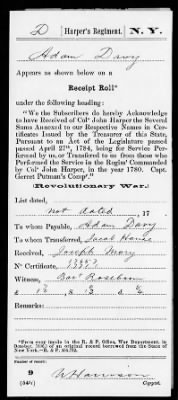 D | Harper's Regiment. | N. Y.
Adam Davy
Appears as shown below on a
Receipt Roll*
under the following heading:
"We the Subscribers do hereby Acknowledge
to have Received of Colº John Harper the Several
Sums Annexed to our Respective Names in Cer-
tificates Issued by the Treasurer of this State,
Pursuant to an Act of the Legislature passed
passed April 27th, 1784, being for Service Perfor-
med by us, or Transfered to us from those who
Performed the Service in the Regimt Commanded
by Colº John Harper, in the year 1780. Capt.
Gerret Putman's Compy."
(Revolutionary War.)
List dated,
not dated 17
To whom Payable, Adam Davy
To whom Transferred, Jacob
Received, Joseph
Nº Certificate,
Witness,
£ , s , d
Remarks:
*From copy made in the R. & P. Office, War Department, in
October, 1905, of an original record borrowed from the State of
New York.—R. & P.
Number of roll:
9
(541) Copyist.